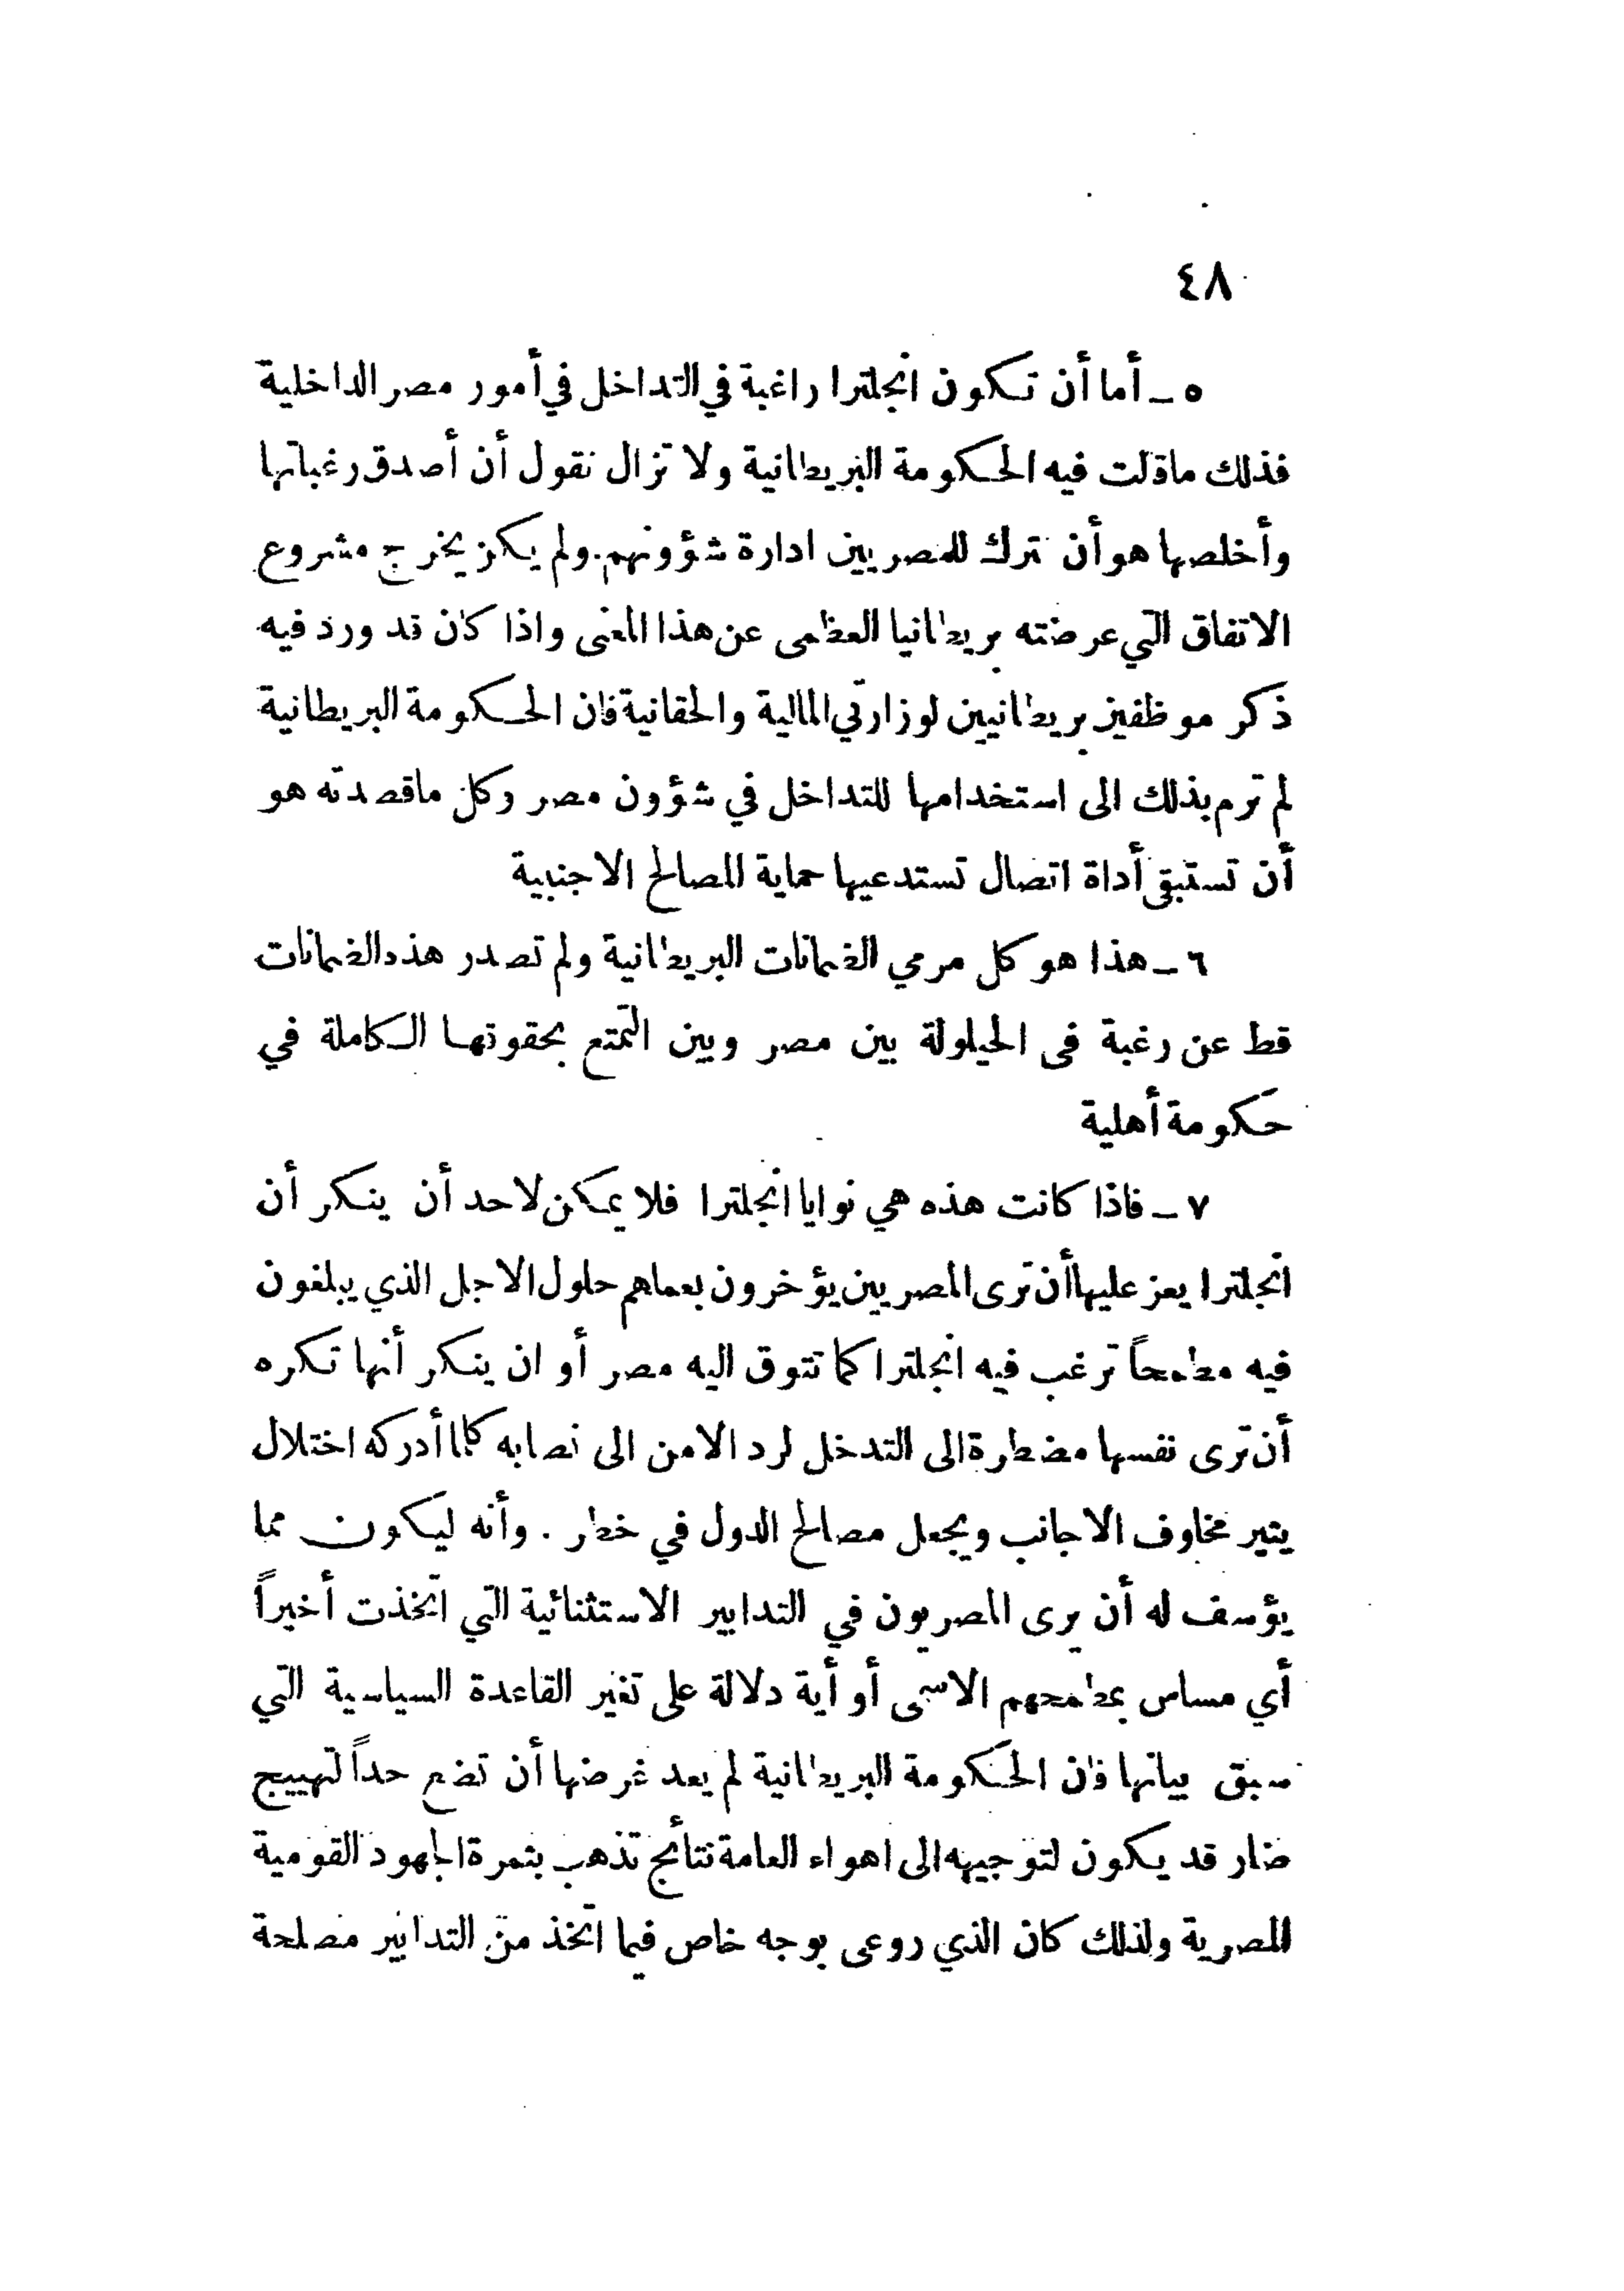 ٤٨
٥ ـ أما أن تكون انجلترا راغبة في التداخل في أمور مصر الداخلية
فذلك ماقالت فيه الحكومة البريطانية ولا تزال تقول أن أصدق رغباتها
وأخلصها هو أن تترك للمصريين ادارة شؤونهم. ولم يكن يخرج مشروع
الاتفاق التي عرضته بريطانيا العظمى عن هذا المعنى واذا كان قد ورد فيه
ذكر موظفين بريطانيين لوزارتي المالية والحقانية فان الحكومة البريطانية
لم ترم بذلك الى استخدامها للتداخل في شؤون مصر وكل ماقصدته هو
أن تستبقي أداة اتصال تستدعيها حماية المصالح الاجنبية
٦ ـ هذا هو كل مرمي الضمانات البريطانية ولم تصدر هذه الضمانات
قط عن رغبة فى الحيلولة بين مصر وبين التمتع بحقوقها الكاملة في
حكومة أهلية
٧ ـ فاذا كانت هذه هي نوايا انجلترا فلا يمكن لاحد أن ينكر أن
انجلترا يعز عليها أن ترى المصريين يؤخرون بعملهم حلول الاجل الذي يبلغون
فيه مطمحاً ترغب فيه انجلترا كما تتوق اليه مصر أو ان ينكر أنها تكره
أن ترى نفسها مضطرة الى التدخل لرد الامن الى نصابه كلما أدركه اختلال
يثير مخاوف الاجانب ويجعل مصالح الدول في خطر . وأنه ليكون مما
يؤسف له أن يرى المصريون في التدابير الاستثنائية التي اتخذت أخيراً
أي مساس بمطمحهم الاسمى أو أية دلالة على تغير القاعدة السياسية التي
سبق بيانها فان الحكومة البريطانية لم يعد غرضها أن تضع حداً لتهييج
ضار قد يكون لتوجيهه الى اهواء العامة نتائج تذهب بثمرة الجهود القومية
المصرية ولذلك كان الذي روعى بوجه خاص فيما اتخذ من التدابير مصلحة